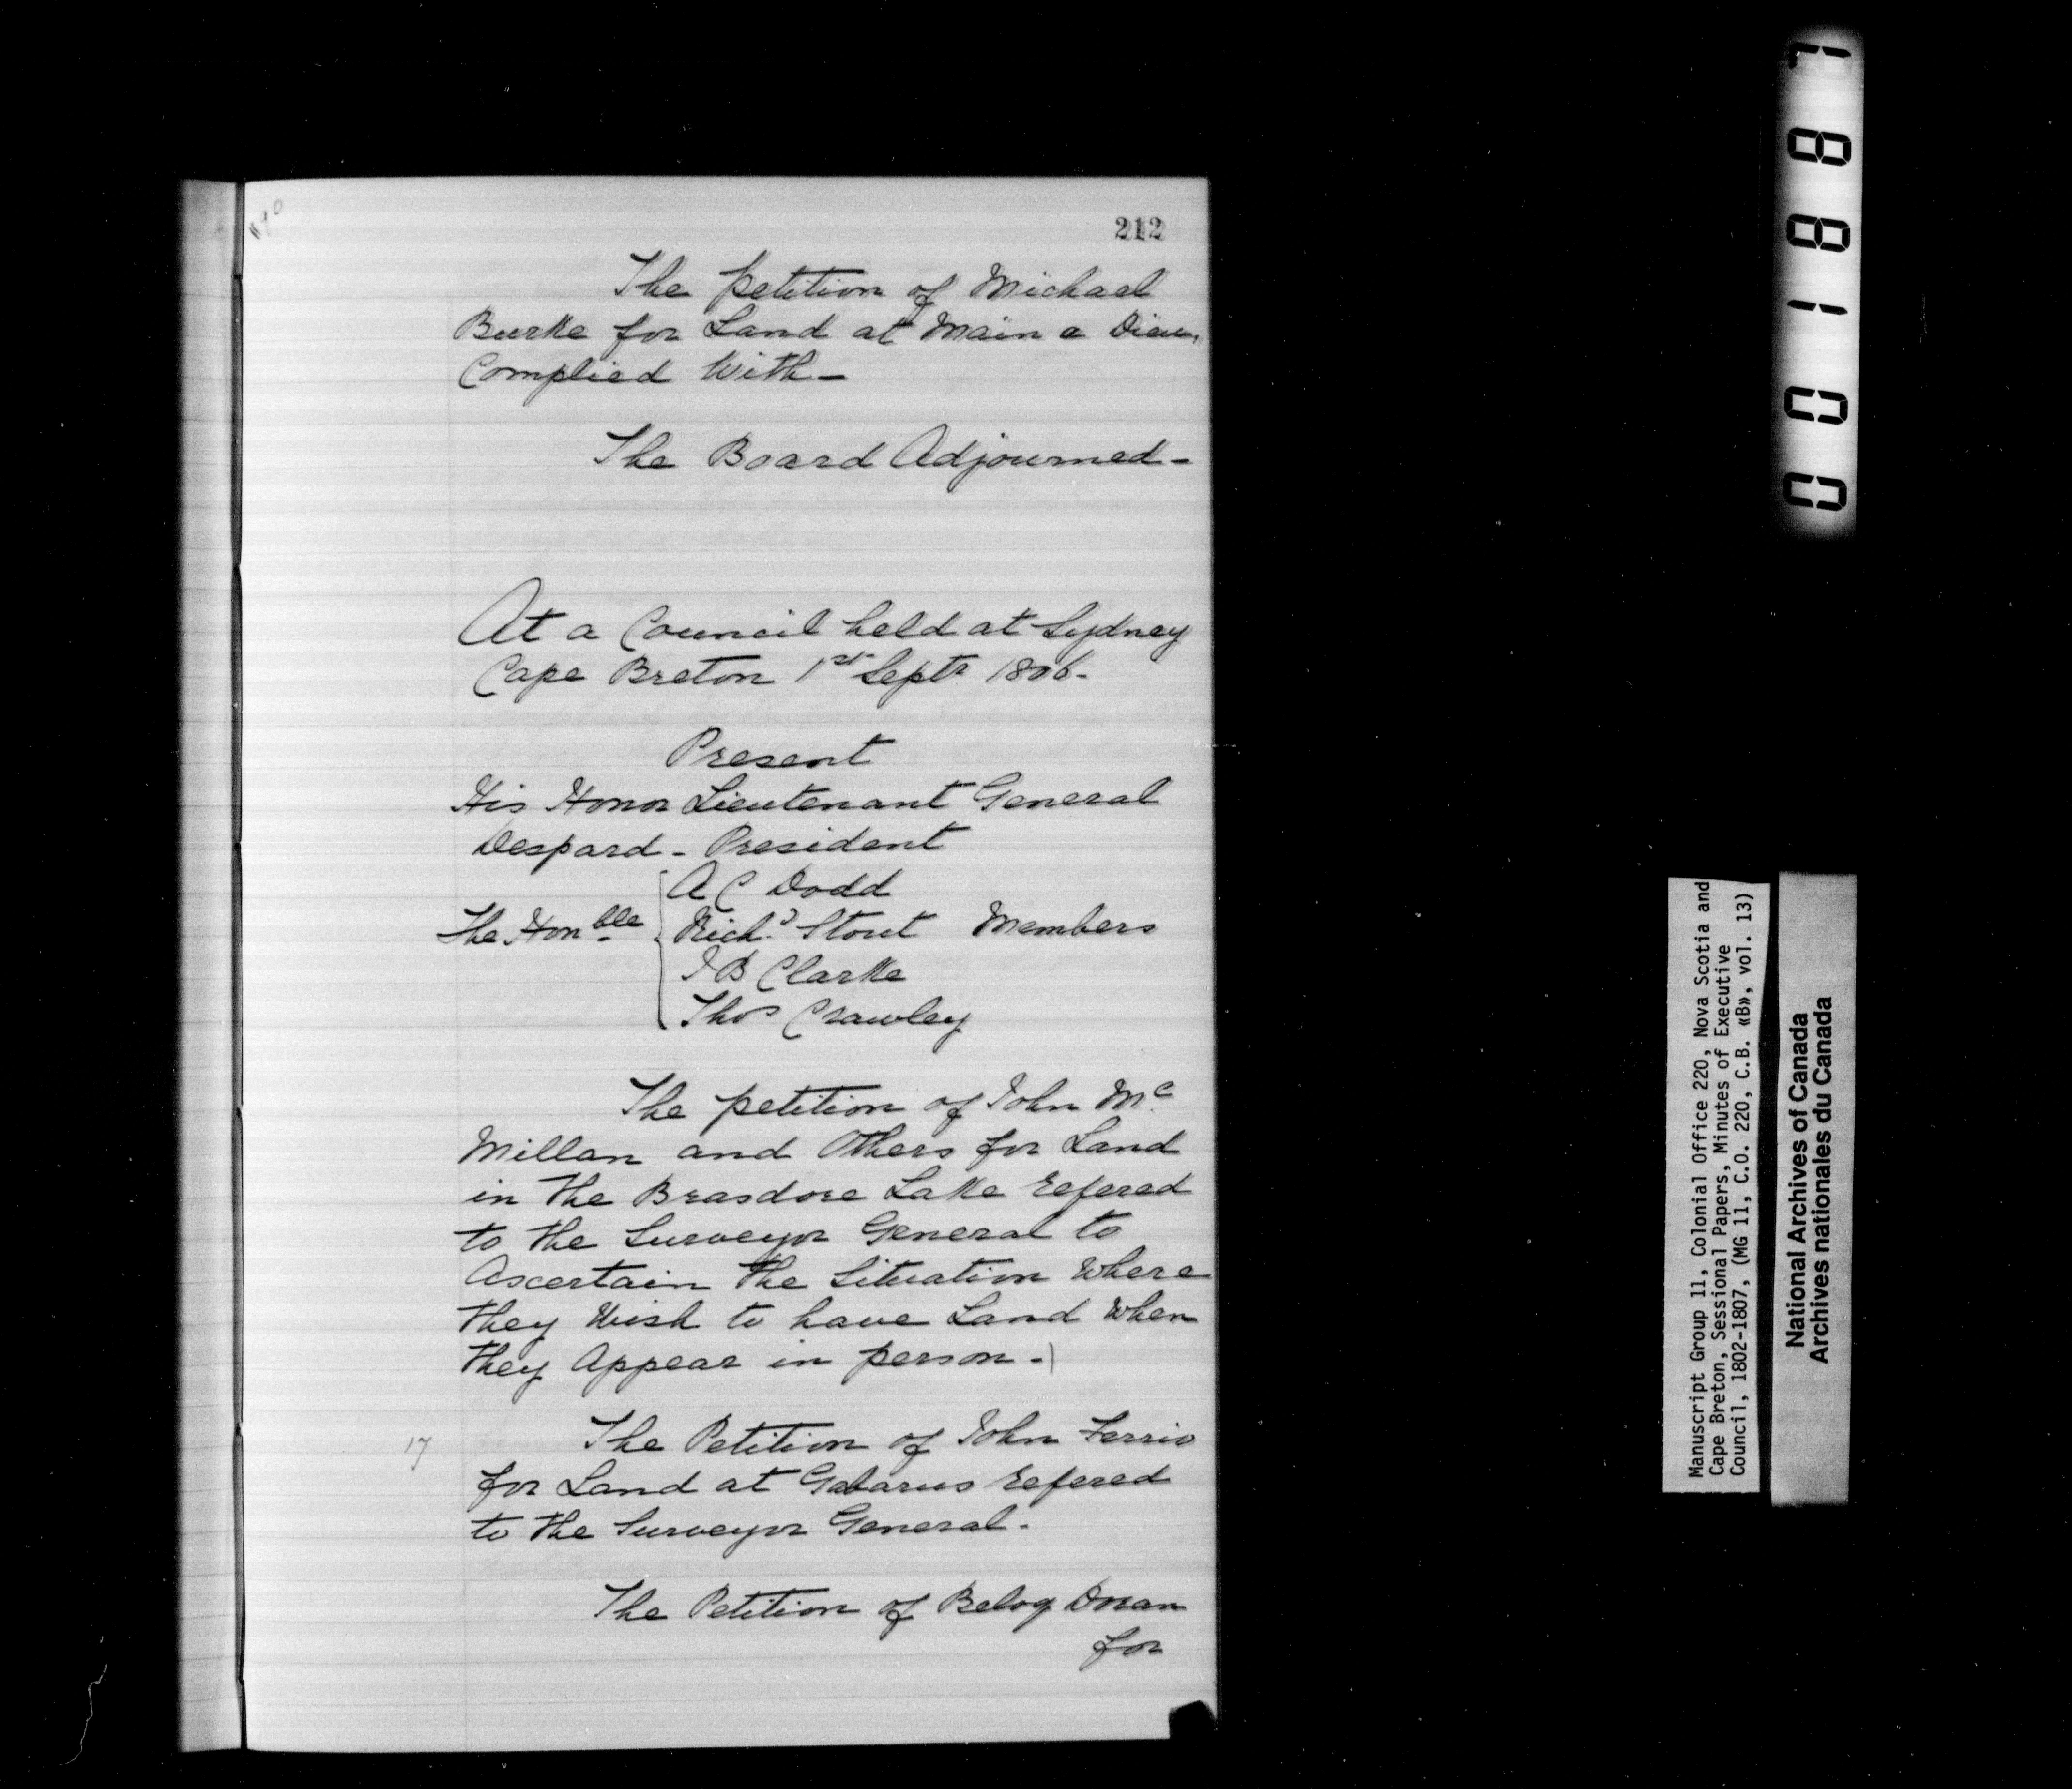 212
The petition of Michael
Burke for Land at Main a Dieu,
Complied With-
The Board Adjourned-
At a Council held at Sydney
Cape Breton 1st Septr 1806-
Present
His Honor Lieutenant General
Despard - President
A C Dodd
The Honble Richd Stout Members
I B Clarke
Thos Crawley
The petition of John Mc
Millan and Others for Land
in the Brasdore Lake refered
to the Surveyor General to
Ascertain the Situation Where
they Wish to have Land When
they Appear in person-
17
The Petition of John Ferrio
for Land at Gabarus refered
to the Surveyor General-
The Petition of Doran
for
001887
Manuscript Group 11, Colonial Office 220, Nova Scotia and
Cape Breton, Sessional Papers, Minutes of Executive
Council, 1802-1807, (MG 11, C.O. 220, C.B. «B», vol. 13)
National Archives of Canada
Archives nationales du Canada